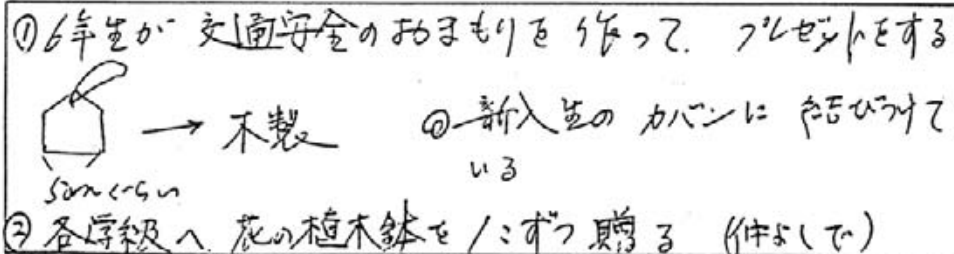 ①6年生が 交通安全のおまもりを 作って、プレゼントをする
→ 木製 ◎新入生の カバンに 結びつけて
いる
5cmくらい
② 各学級へ 花の植木鉢を 1こずつ 贈る (仲よしで)